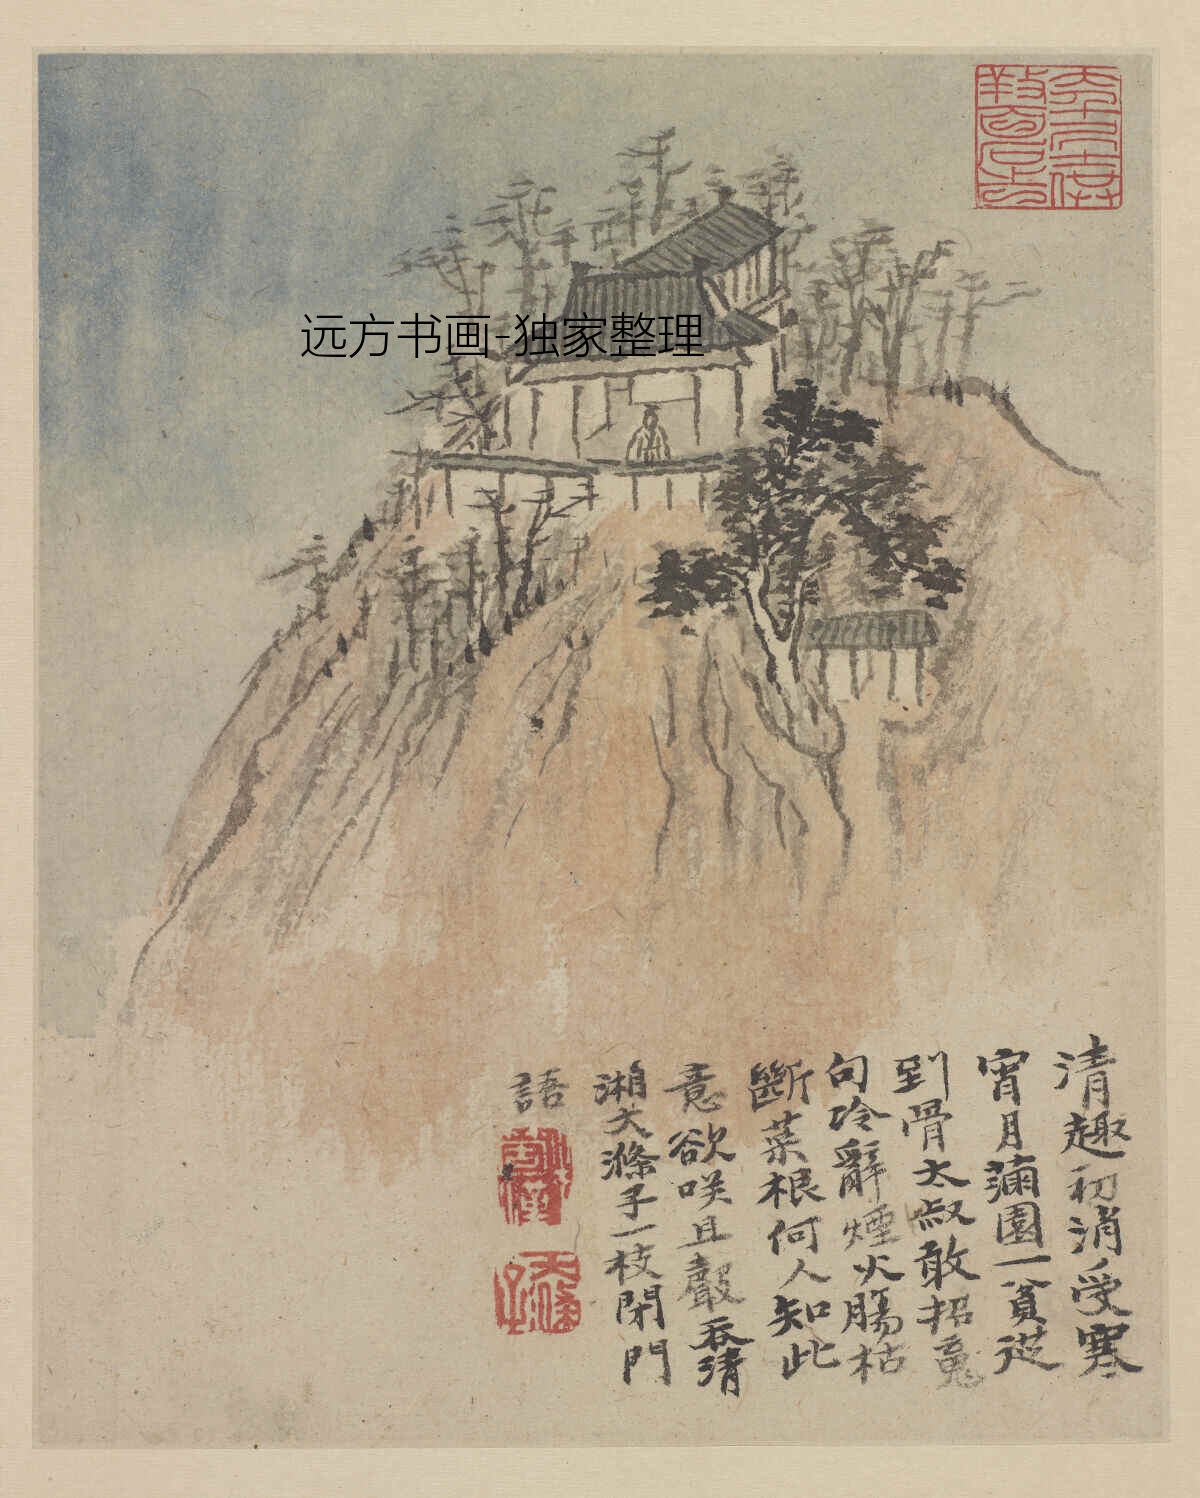 远方书画-独家整理
清趣初消受寒
宵月滿園一貧從
到骨太叔敢招䰟
句冷辭煙火腸枯
斷菜根何人知此
意欲咲且聲吞清
湘大滌子一枝閉門
語